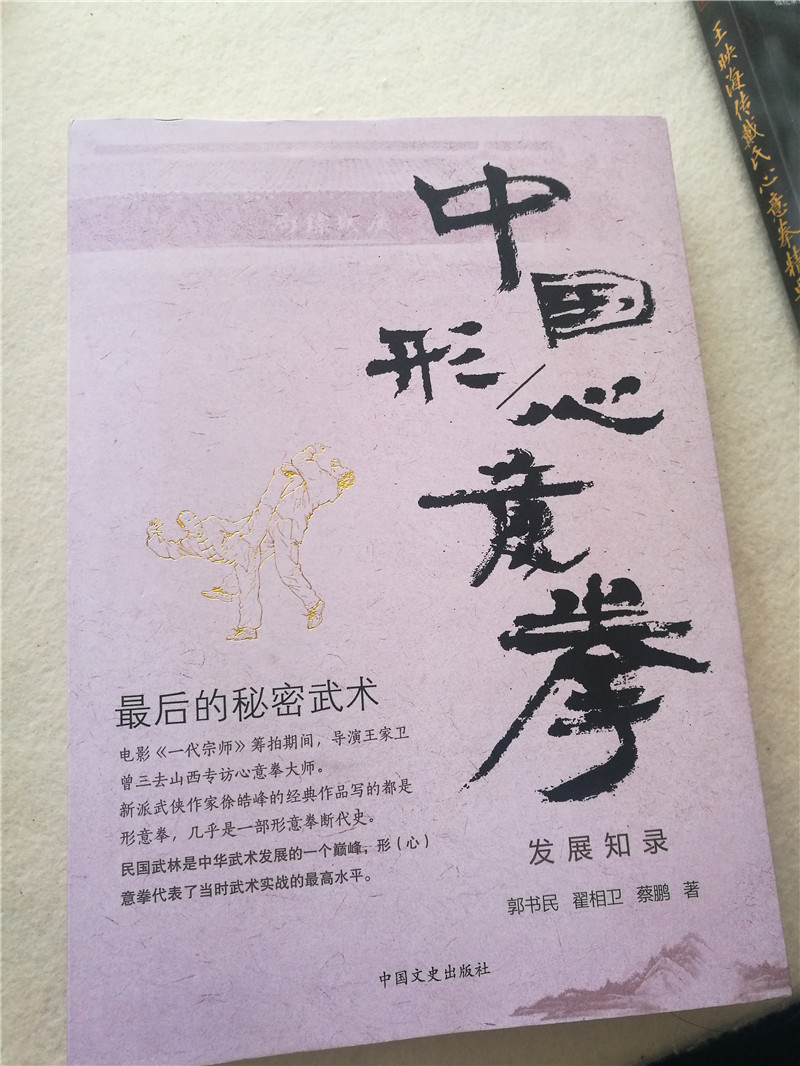 中国
形/心
意拳
发展知录
郭书民 翟相卫 蔡鹏 著
最后的秘密武术
电影《一代宗师》筹拍期间，导演王家卫
曾三去山西专访心意拳大师。
新派武侠作家徐皓峰的经典作品写的都是
形意拳，几乎是一部形意拳断代史。
民国武林是中华武术发展的一个巅峰，形（心）
意拳代表了当时武术实战的最高水平。
中国文史出版社
王映海传戴氏心意拳精